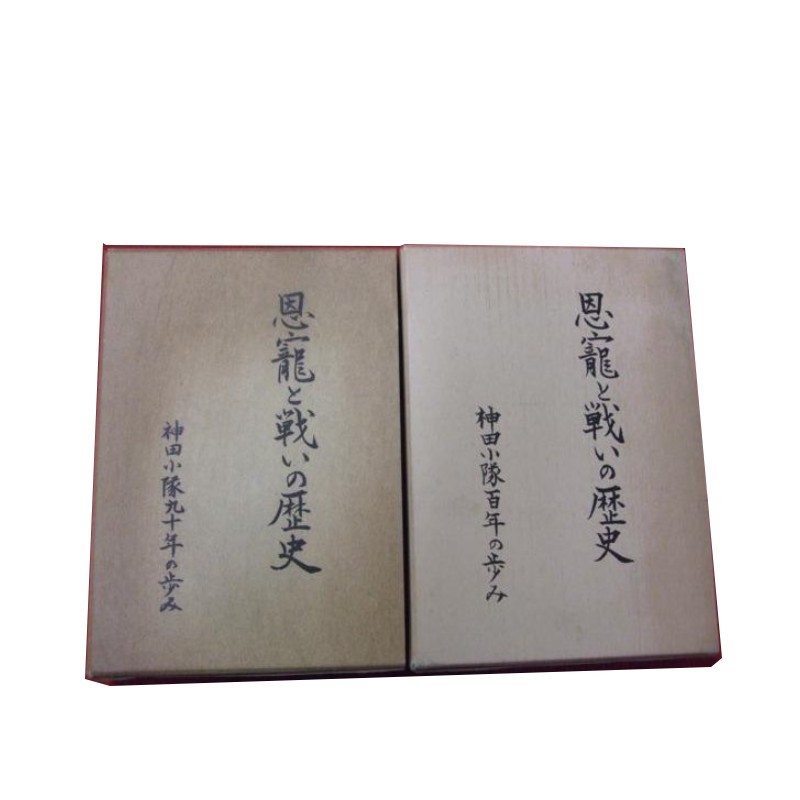 恩寵と戦いの歴史
神田小隊九十年の歩み
恩寵と戦いの歴史
神田小隊百年の歩み